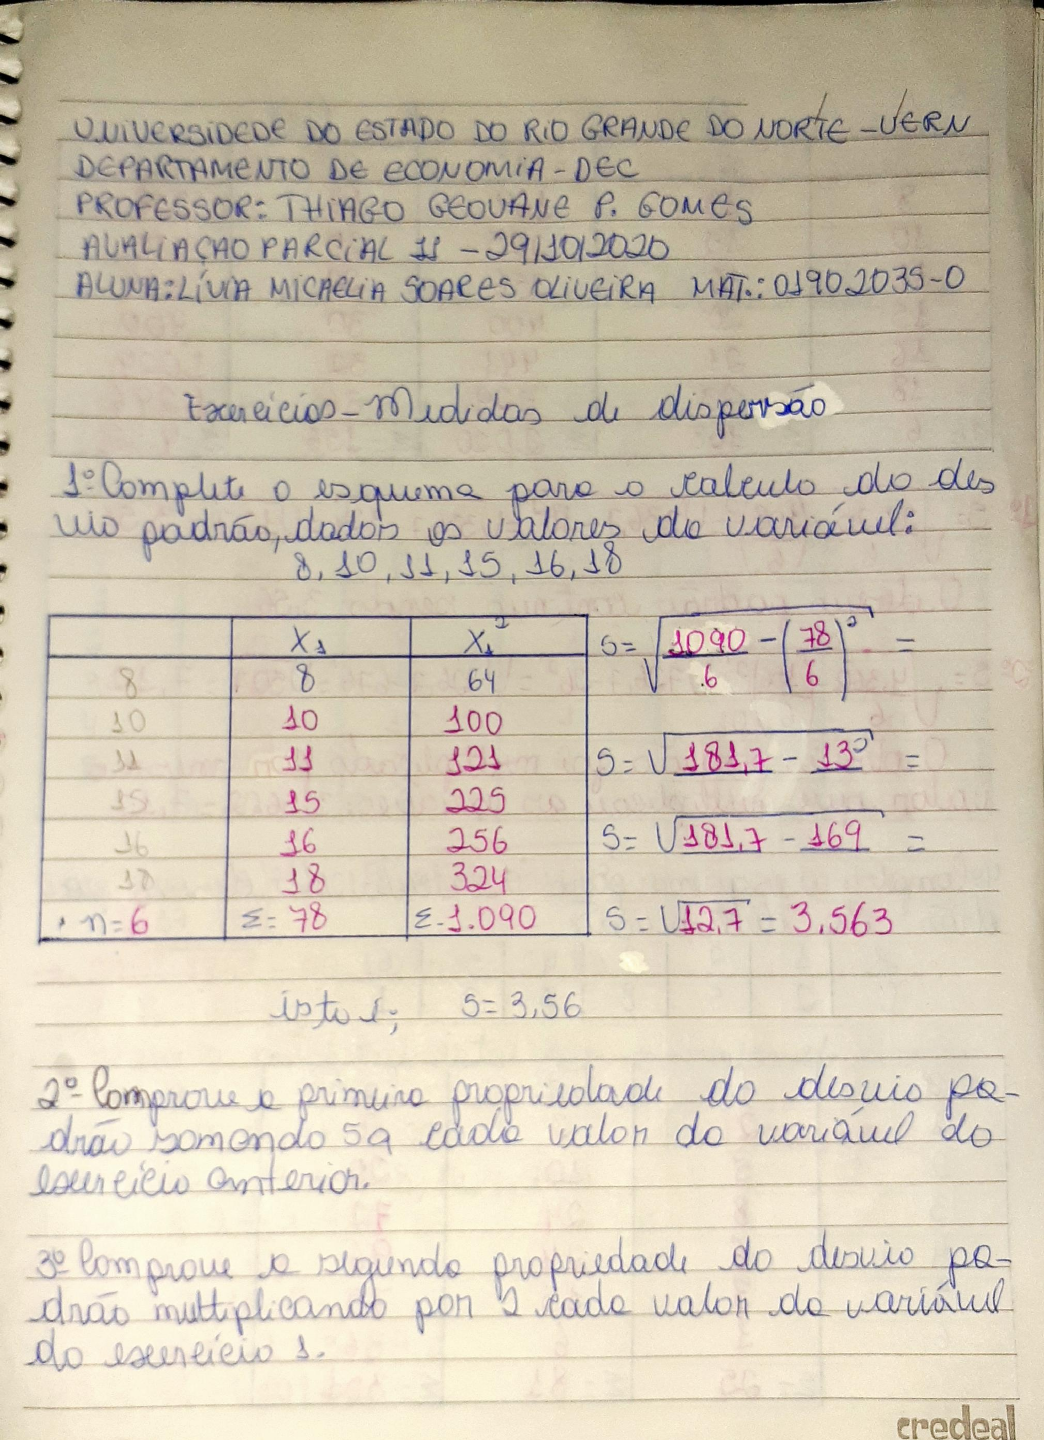 UNIVERSIDEDE DO ESTADO DO RIO GRANDE DO NORTE - UERN
DEPARTAMENTO DE ECONOMIA - DEC
PROFESSOR: THIAGO GEOVANE P. GOMES
AVALIAÇAO PARCIAL II - 29/10/2020
ALUNA: LÍVIA MICAELIA SOARES OLIVEIRA MAT.: 01902035-0
Exercícios - Medidas de dispersão
1º Complete o esquema para o calculo do des
vio padrão, dados os valores da variável:
8, 10, 11, 15, 16, 18
X₁ X₁²
8 8 64
10 10 100
11 11 121
15 15 225
16 16 256
18 18 324
n=6 Σ= 78 Σ-1.090
S= √1090/6 - (78/6)² =
S= √181,7 - 13² =
S= √181,7 - 169 =
S= √12,7 = 3,563
isto é; S= 3,56
2º Comprove a primeira propriedade do desvio pa-
drão somando 5 a cada valor da variável do
exercício anterior.
3º Comprove a segunda propriedade do desvio pa-
drão multiplicando por 2 cada valor da variável
do exercício 1.
credeal